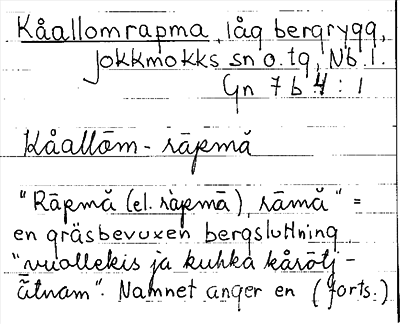 Kåallomrapma, låg bergrygg,
Jokkmokks sn o. tg, Nb. l.
Gn 7 b 4 : 1
Kåallōm - rāpmă
"Rāpmă (el. ràpmā), rāmă" =
en gräsbevuxen bergsluttning
"vuollekis ja kuhka kårŏtj -
ätnam". Namnet anger en (forts.)